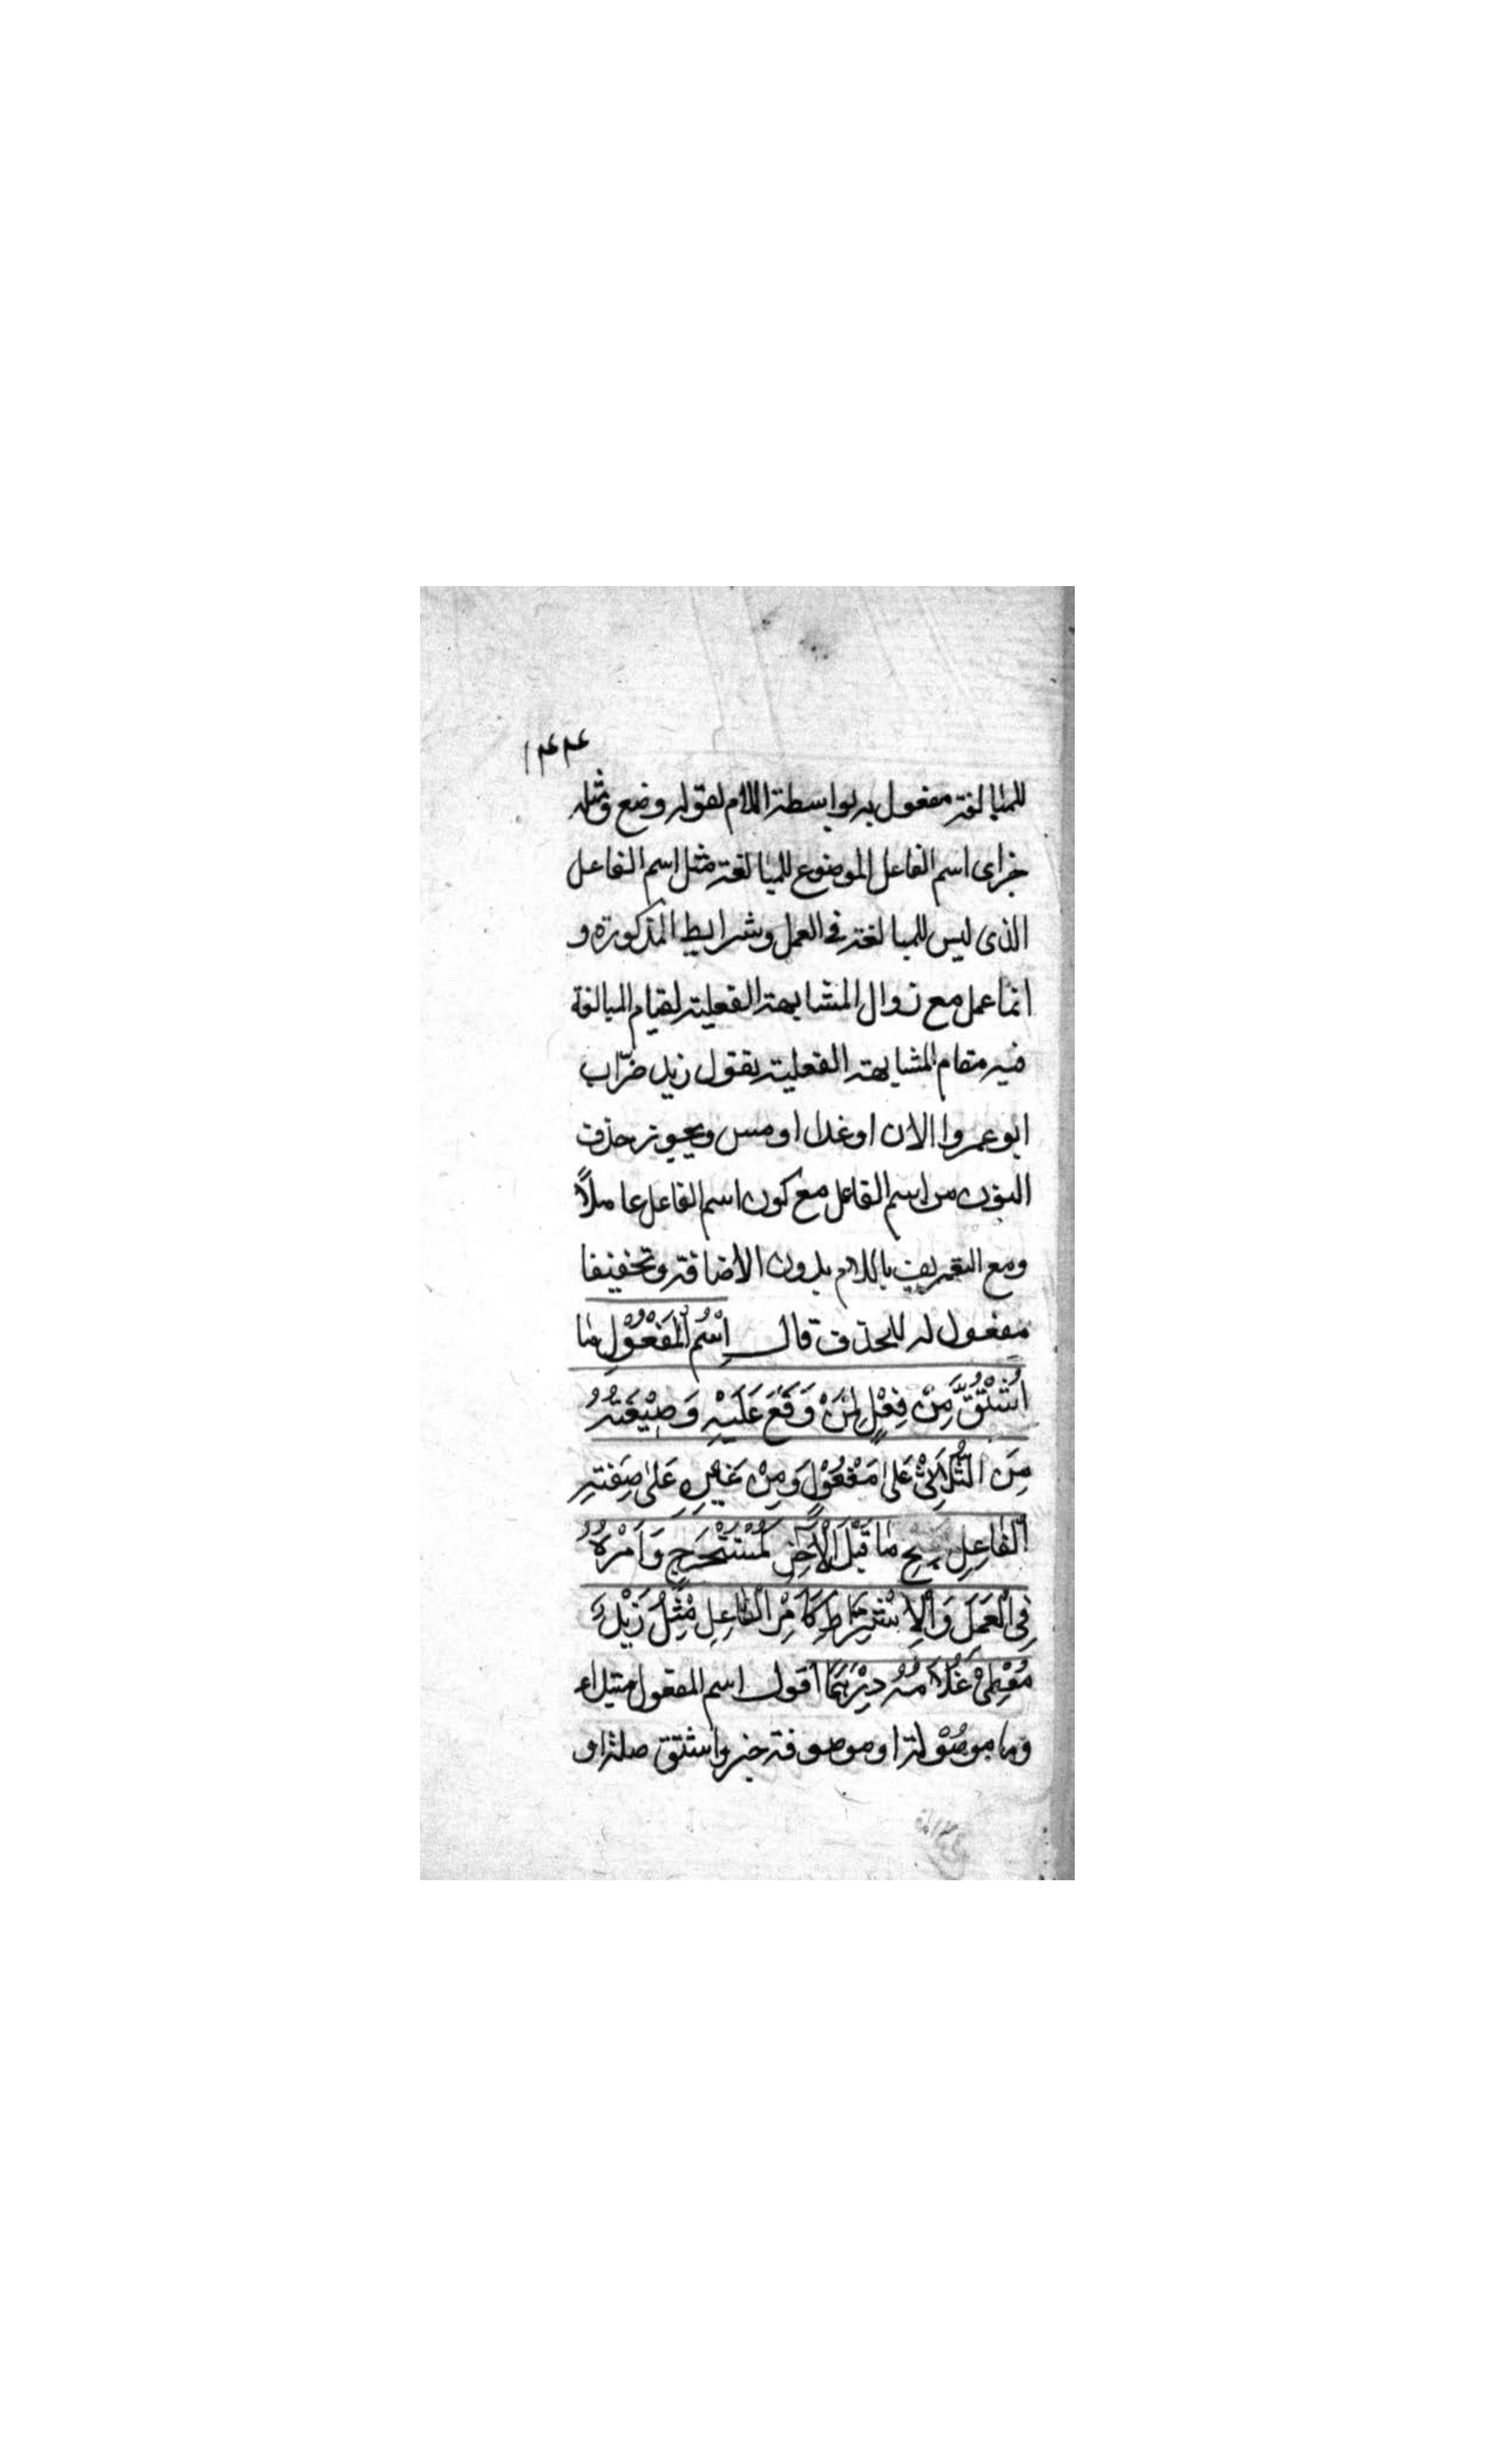 ۱۴۴
للمبالغة مفعول به بواسطة اللام لقوله وضع ومثله
خبر اى اسم الفاعل الموضوع للمبالغة مثل اسم الفاعل
الذى ليس للمبالغة فى العمل وشرايط المذكورة و
انما عمل مع زوال المشابهة الفعلية لقيام المبالغة
فيه مقام المشابهة الفعلية يقول زيد ضرّاب
ابو عمروا الان او غدا او مس ويجوز حذف
النون من اسم الفاعل مع كون اسم الفاعل عاملاً
ومع التعريف باللام بدون الاضافة وتخفيفا
مفعول له للحذف قال اِسْمُ الْمَفْعُوْلِ مَا
اشْتُقَّ مِنْ فِعْلٍ لِمَنْ وَقَعَ عَلَيْهِ وَصِيْغَتُهُ
مِنَ الثُّلَاثِىْ عَلىٰ مَفْعُوْلٍ وَمِنْ غَيْرِهِ عَلىٰ صِيغَتِهِ
الفَاعِلِ بفتح مَا قَبْلَ الْآخِرِ كَمُسْتَخْرَجٍ وَاَمْرُهُ
فِى الْعَمَلِ وَالْاِشْتِرَاطِ كَاَمْرِ الْفَاعِلِ مِثْلُ زَيْدٌ
مُعْطىً غُلَامُهُ دِرْهَمًا اقول اسم المفعول مبتداء
وما موصُوْلة او موصوفة خبر واشتق صلة او